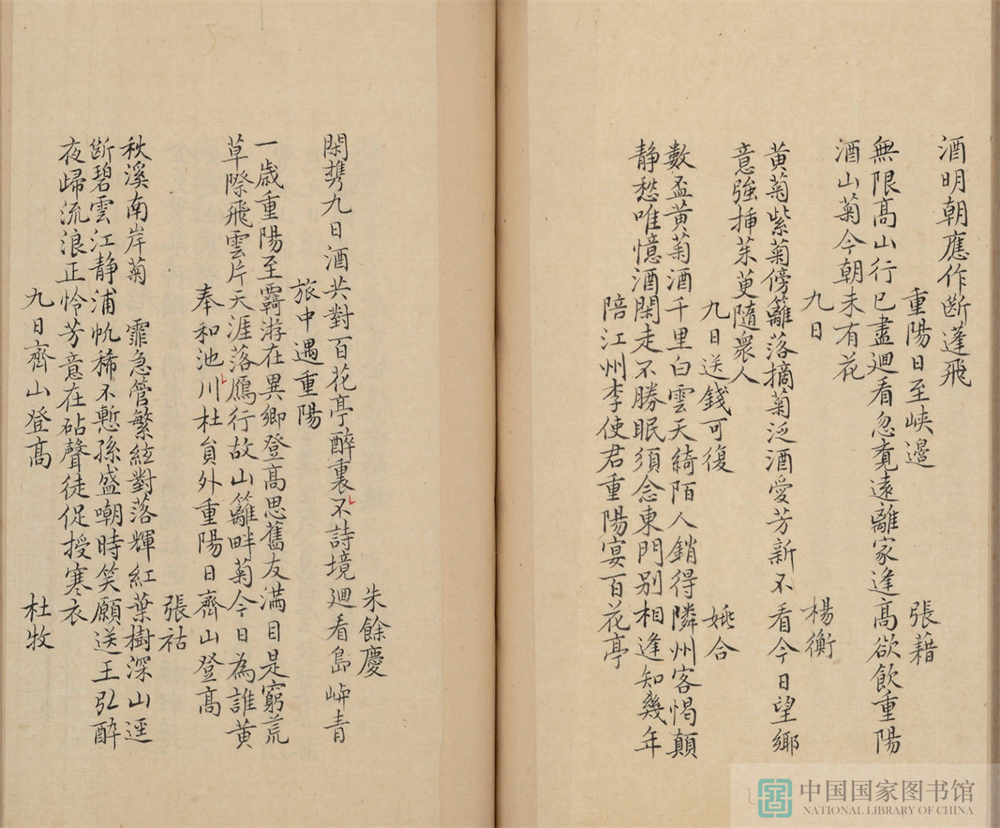 酒明朝應作断蓬飛
重陽日至峽邊 張藉
無限髙山行已盡廻看忽覔遠離家逢髙欲飲重陽
酒山菊今朝未有花
九日 楊衡
黄菊紫菊傍籬落摘菊泛酒愛芳新不看今日望鄉
意強揷茱更隨衆人
九日送錢可復 姚合
數盃黄菊酒千里白雲天綺陌人銷得隣州客惕顛
静愁唯憶酒閑走不勝眠須念東門别相逢知幾年
陪江州李使君重陽宴百花亭
朱餘慶
閑携九日酒共對百花亭醉裏不詩境廻看島屿青
旅中遇重陽
一歳重陽至羇游在異鄉登髙思舊友滿目是窮荒
草際飛雲片天涯落鴈行故山籬畔菊今日為誰黄
奉和池川杜貟外重陽日齊山登髙
張祜
秋溪南岸菊霏霏急管繁絃對落輝紅葉樹深山逕
断碧雲江静浦帆稀不慙孫盛嘲時笑願送王弘酔
夜歸流浪正怜芳意在砧聲徒促授寒衣
九日齊山登髙 杜牧
中国国家图书馆
NATIONAL LIBRARY OF CHINA